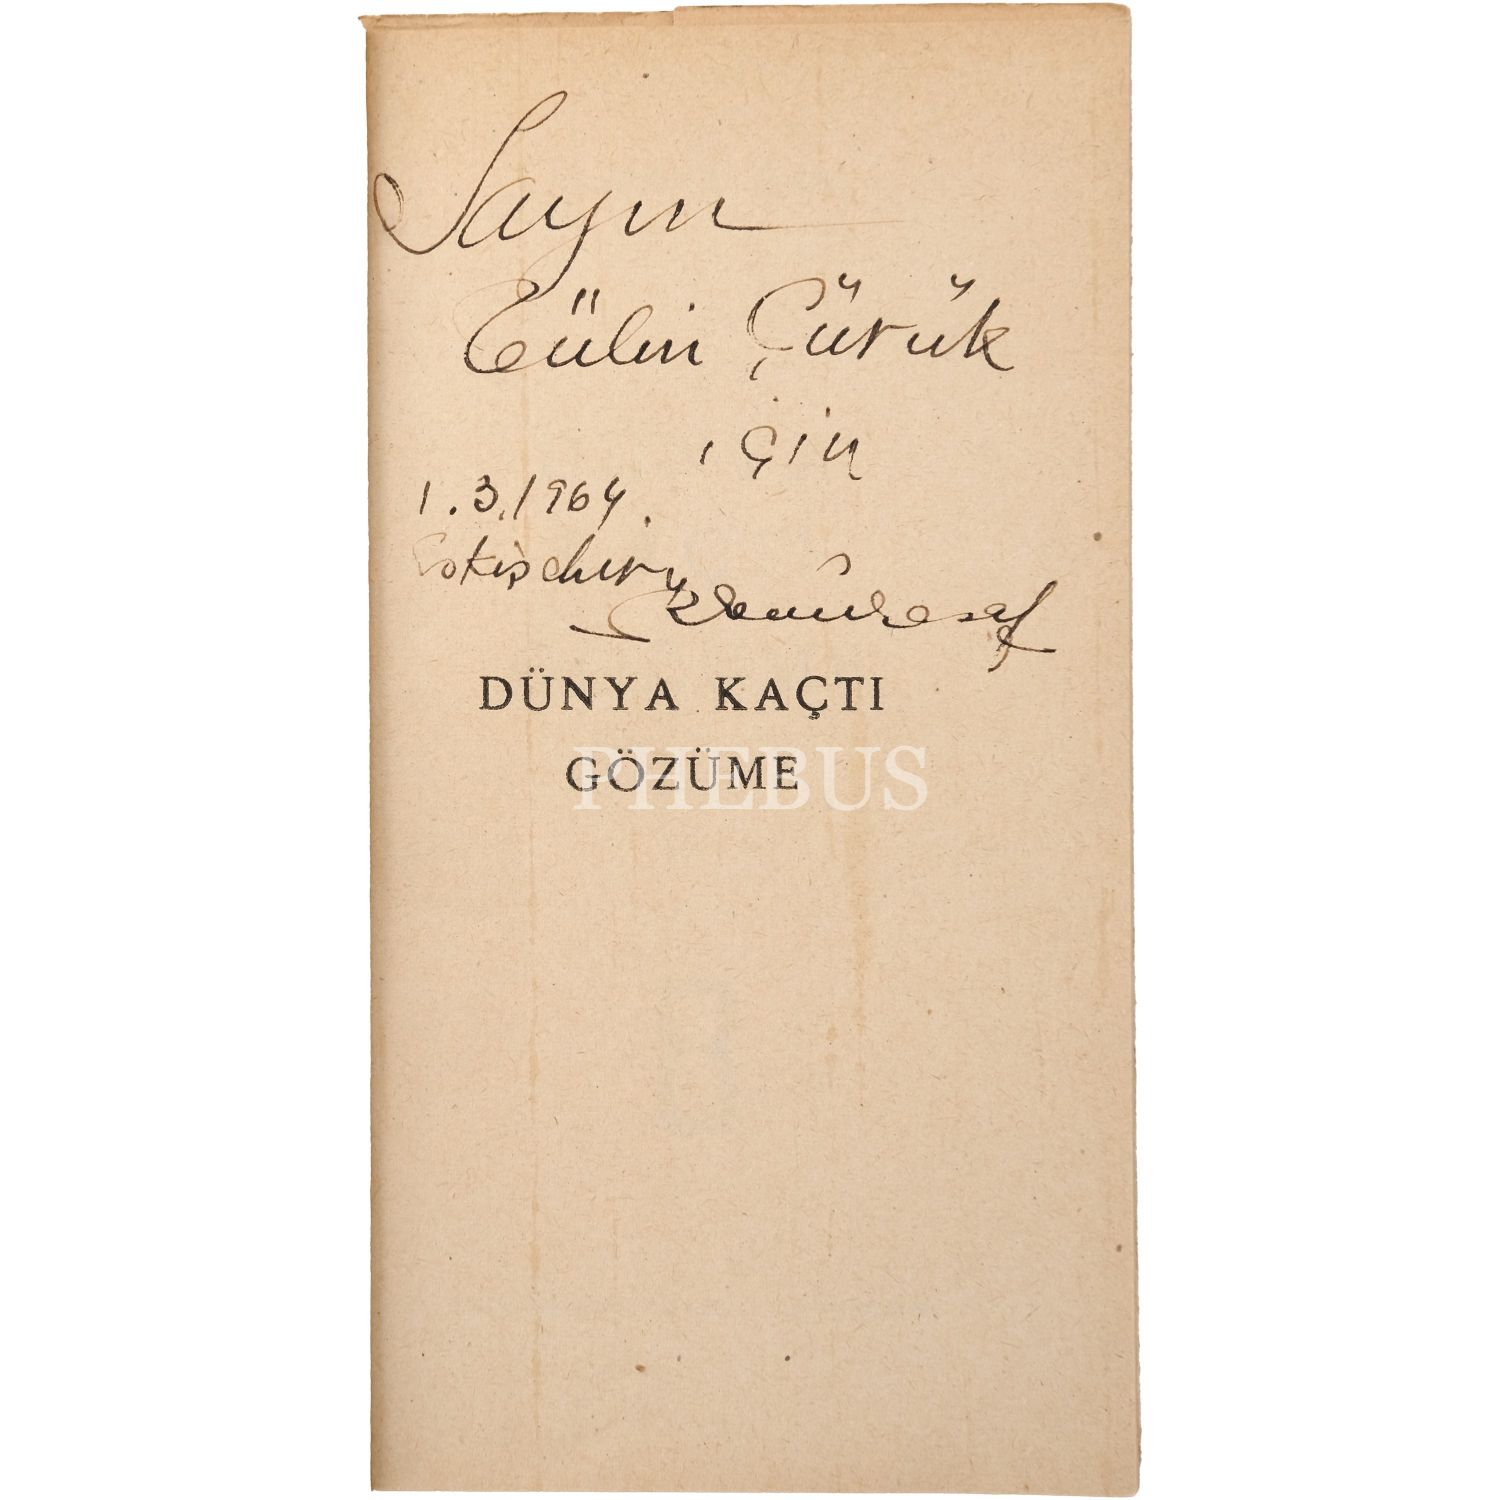 Sayın
Tülin Çürük
için
1.3.1964.
Eskişehir
DÜNYA KAÇTI
GÖZÜME
PHEBUS